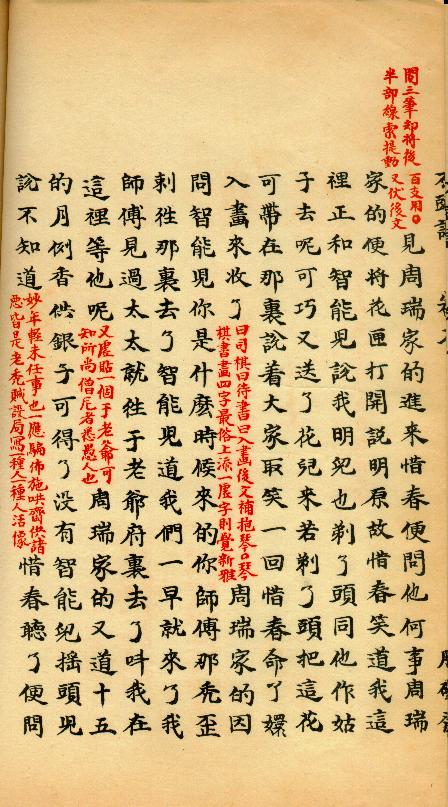 閒三筆却將後
半部線索提動
百支用〇
又伏後文
見周瑞家的進來惜春便問他何事周瑞
家的便將花匣打開說明原故惜春笑道我這
裡正和智能兒說我明兒也剃了頭同他作姑
子去呢可巧又送了花兒來若剃了頭把這花
可帶在那裏說着大家取笑一回惜春命了嬛
入畫來收了
曰司棋曰待書曰入畫後文補抱琴〇琴
棋書畫四字最俗上派一虛字則覺新雅
周瑞家的因
問智能兒你是什麼時候來的你師傅那禿歪
剌徃那裏去了智能兒道我們一早就來了我
師傅見過太太就徃于老爺府裏去了呌我在
這裡等他呢
又虛貼一個于老爺可
知所尚僧尼者悉愚人也
周瑞家的又道十五
的月例香供銀子可得了沒有智能兒搖頭兒
說不知道
妙年輕未任事也一應騙佈施哄齋供諸
惡皆是老禿賊設局寫一種人一種人活像
惜春聽了便問